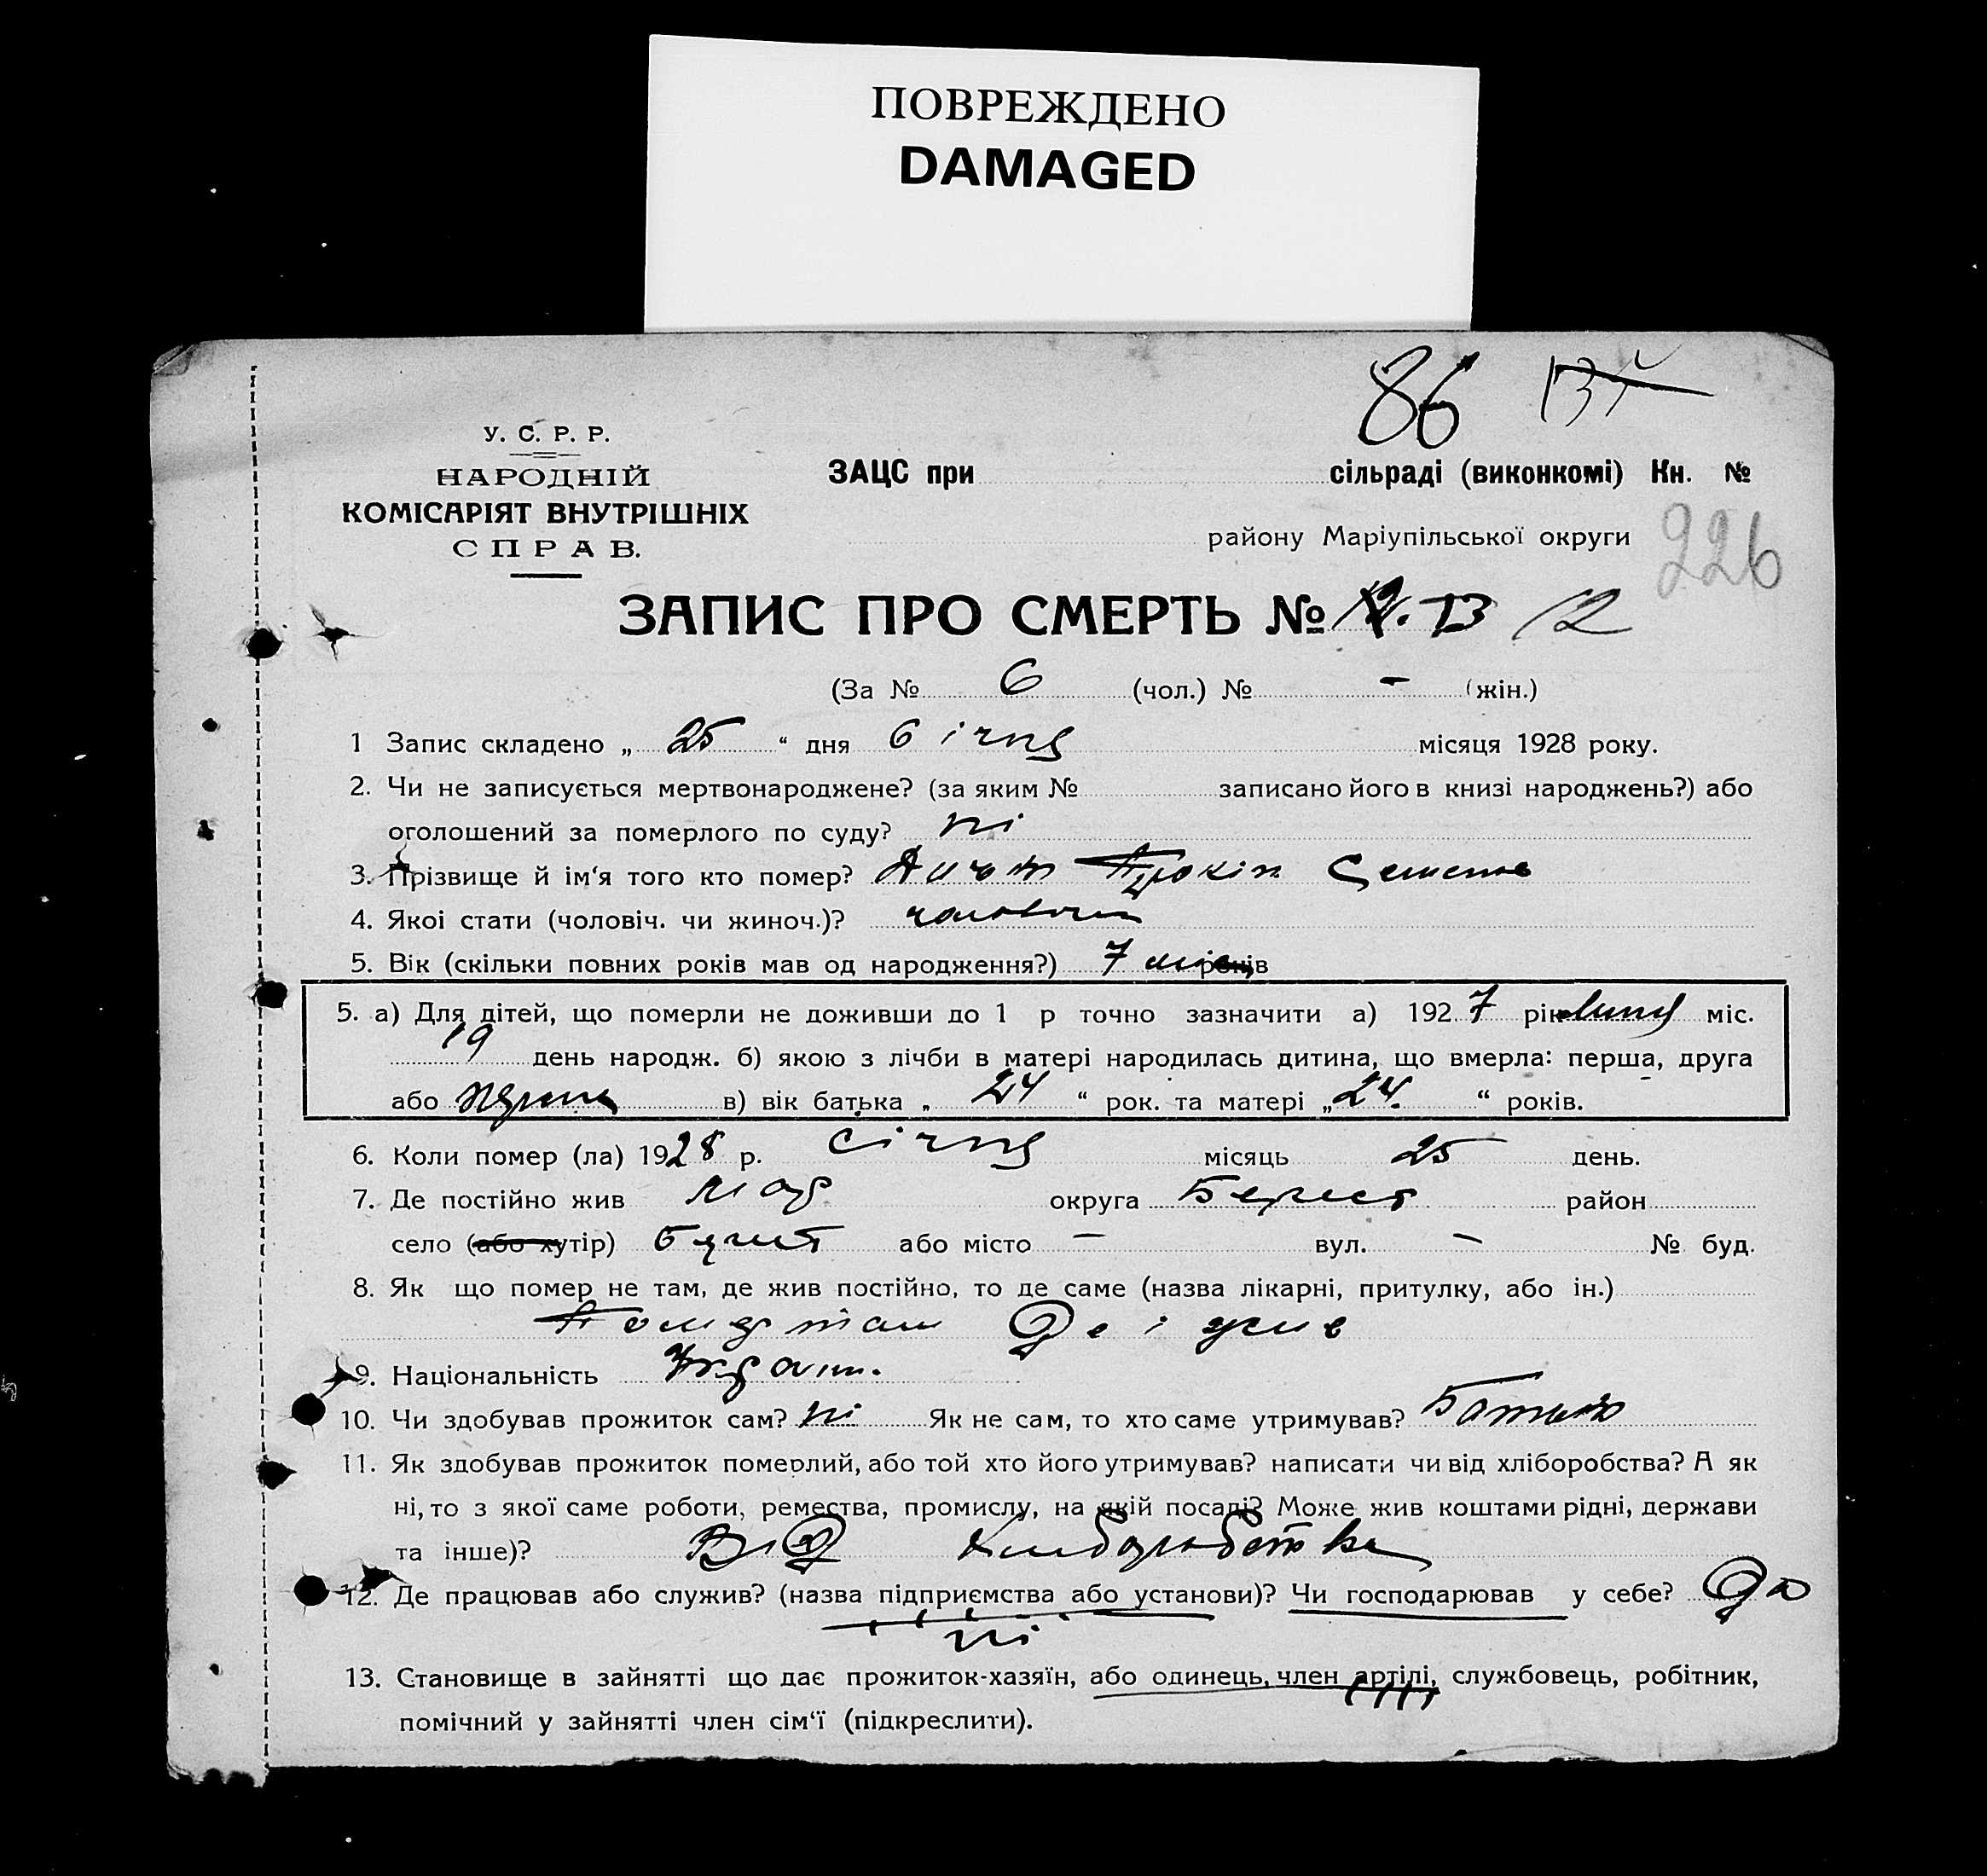 ПОВРЕЖДЕНО
DAMAGED
86
У. С. Р. Р.
НАРОДНІЙ
КОМІСАРІЯТ ВНУТРІШНІХ
СПРАВ.
ЗАЦС при сільраді (виконкомі) Кн. №
району Маріупільської округи 226
ЗАПИС ПРО СМЕРТЬ № 13 12
(За № 6 (чол.) № - (жін.)
1 Запис складено „ 25 “ дня січня місяця 1928 року.
2. Чи не записується мертвонароджене? (за яким № записано його в книзі народжень?) або
оголошений за померлого по суду? ні
3. Прізвище й ім‘я того кто помер? Прокіп Семенов
4. Якоі стати (чоловіч. чи жиноч.)? чоловічий
5. Вік (скільки повних років мав од народження?) 7 міс років
5. а) Для дітей, що померли не доживши до 1 р точно зазначити а) 192 7 рік липня міс.
19 день народж. б) якою з лічби в матері народилась дитина, що вмерла: перша, друга
або перша в) вік батька „ 24 “ рок. та матері „ 24. “ років.
6. Коли помер (ла) 1928 р. січня місяць 25 день.
7. Де постійно жив Мар округа Берест район
село (або хутір) Берест або місто — вул. — № буд.
8. Як що помер не там, де жив постійно, то де саме (назва лікарні, притулку, або ін.)
Помер там Де і жив
9. Національність Україн.
10. Чи здобував прожиток сам? ні Як не сам, то хто саме утримував? Батько
11. Як здобував прожиток померлий, або той хто його утримував? написати чи від хліборобства? А як
ні, то з якої саме роботи, ремества, промислу, на якій посаді? Може жив коштами рідні, держави
та інше)? Від Хліборобства
12. Де працював або служив? (назва підприємства або установи)? Чи господарював у себе? Да
ні
13. Становище в зайнятті що дає прожиток-хазяїн, або одинець, член артілі, службовець, робітник,
помічний у зайнятті член сім‘ї (підкреслити).